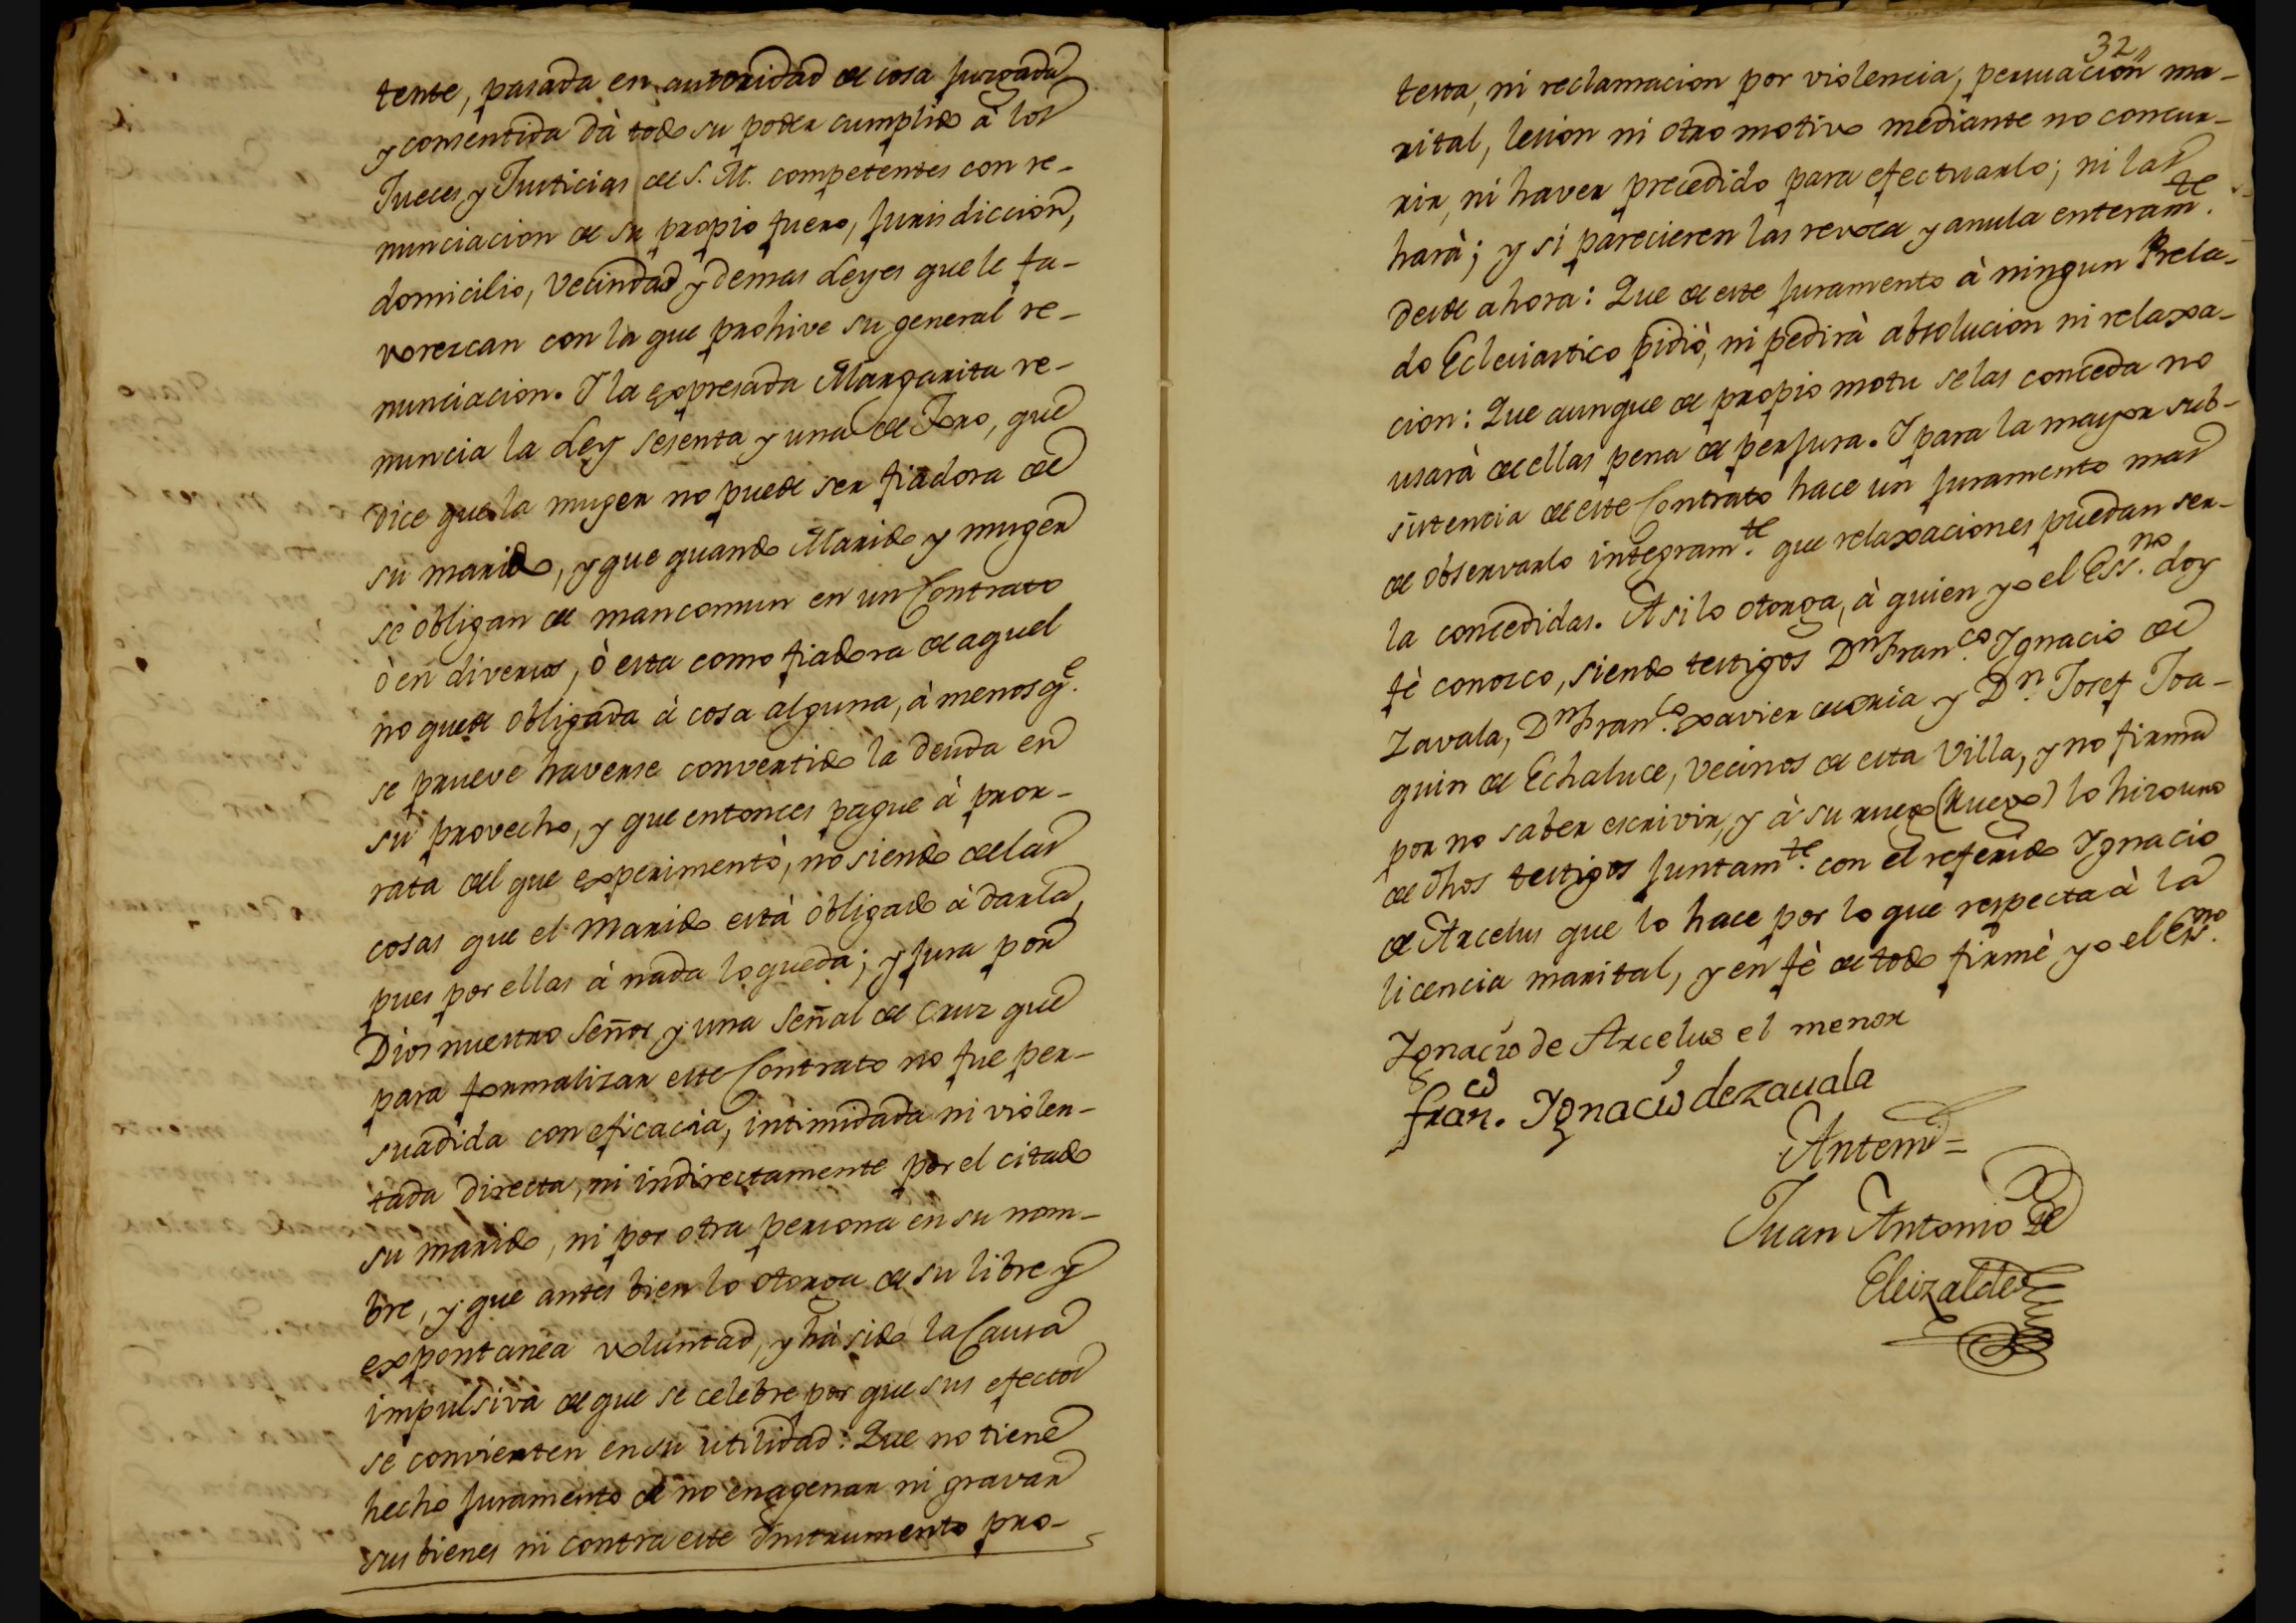 tente, pasada en autoridad de cosa juzgada
y consentida dà todo su poder cumplido à los
Jueces y Justicias de S. M. competentes con re-
nunciacion de su propio fuero, jurisdiccion,
domicilio, Vecindad y demas Leyes que le fa-
vorezcan con la que prohive su general re-
nunciacion. Y la expresada Margarita re-
nuncia la Ley sesenta y una de Toro, que
dice que la muger no puede ser fiadora de
su marido, y que quando Marido y muger
se obligan de mancomun en un Contrato
ò en diversos, ò esta como fiadora de aquel
no quede obligada à cosa alguna, à menos qe.
se prueve haverse convertido la deuda en
su provecho, y que entonces pague à pror-
rata del que experimentò, no siendo de las
cosas que el Marido està obligado à darla,
pues por ellas à nada lo queda; y jura por
Dios nuestro Señor y una Señal de Cruz que
para formalizar este Contrato no fue per-
suadida con eficacia, intimidada ni violen-
tada directa, ni indirectamente por el citado
su marido, ni por otra persona en su nom-
bre, y que antes bien lo otorga de su libre y
expontanea voluntad, y hà sido la Causa
impulsiva de que se celebre por que sus efectos
se convierten en su utilidad: Que no tiene
hecho juramento de no enagenar ni gravar
sus bienes ni contra este Instrumento pro-
32
testa, ni reclamacion por violencia, persuacion ma-
rital, lesion ni otro motivo mediante no concur-
rir, ni haver precedido para efectuarlo; ni las
harà; y si parecieren las revoca y anula enteramte.
desde ahora: Que de este juramento à ningun Prela-
do Eclesiastico pidiò, ni pedirà absolucion ni relaxa-
cion: Que aunque de propio motu se las conceda no
usarà de ellas pena de perjura. Y para la mayor sub-
sistencia de este Contrato hace un juramento mas
de observarlo integramte. que relaxaciones puedan ser-
la concedidas. Asi lo otorga, à quien yo el Essno. doy
fè conozco, siendo testigos Dn Franco. Ygnacio de
Zavala, Dn Franco. xavier de oria y Dn. Josef Joa-
quin de Echaluce, Vecinos de esta Villa, y no firma
por no saber escrivir, y à su ruego (Ruego) lo hizo uno
de dhos testigos juntamte. con el referido Ygnacio
de Arcelus que lo hace por lo que respecta à la
licencia marital, y en fè de todo firmè yo el Essno.
Ygnacio de Arcelus el menor
Franco. Ygnacio de zauala
Antemi=
Juan Antonio de
Eleizalde